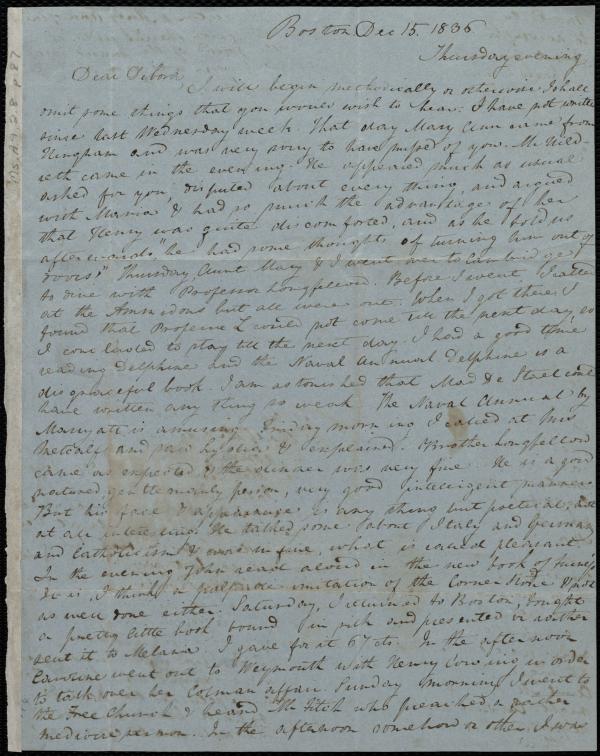 Boston Dec 15. 1836
Thursday evening
Dear Debora
I will begin methodically or otherwise I shall
omit some things that you would wish to hear. I have not written
since last Wednesday week. That day Mary Ann came from
Hingham and was very sorry to have missed of you. Mr
came in the evening. He appeared much as usual
asked for you, disputed about every thing, and argued
with Maria & had so much the advantage of her
that Henry was quite discomforted, and as he told us
afterwards, "he had some thoughts of turning him out of
doors" Thursday, Aunt Mary & I went over to Cambridge,
to dine with Professor Longfellow. Before I went I called
at the Ammidons but all were out. When I got there I
found that Professor L could not come till the next day, so
I concluded to stay till the next day. I had a good time
reading Delphine and the Naval Annual Delphine is a
disgraceful book. I am astonished that Mad De Stael could
have written any thing so weak The Naval Annual by
Marryatt is amusing. Friday morning I called at Mrs
Metcalf and saw & explained. Brother Longfellow
came as expected & the dinner was very fine. He is a good
natured, gentlemanly person, very good intelligent manners
But his face & appearance is any thing but poetical, not
at all interesting. He talked some about Italy and Germany
and Catholicism & was in fine, what is called pleasant.
In the evening John read aloud in the new book of
It is, I think, a palpable imitation of the Corner Stone & not
as well done either. Saturday, I returned to Boston, bought
a pretty little book bound in silk and presented or rather
sent it to Melania I gave for it 67 cts. In the afternoon
Caroline went out to Weymouth with Henry Cowing in order
to talk over her Colman affair. Sunday morning I went to
the Free Church & heard Mr Fitch who preached a rather
mediocre sermon. In the afternoon somehow or other I was